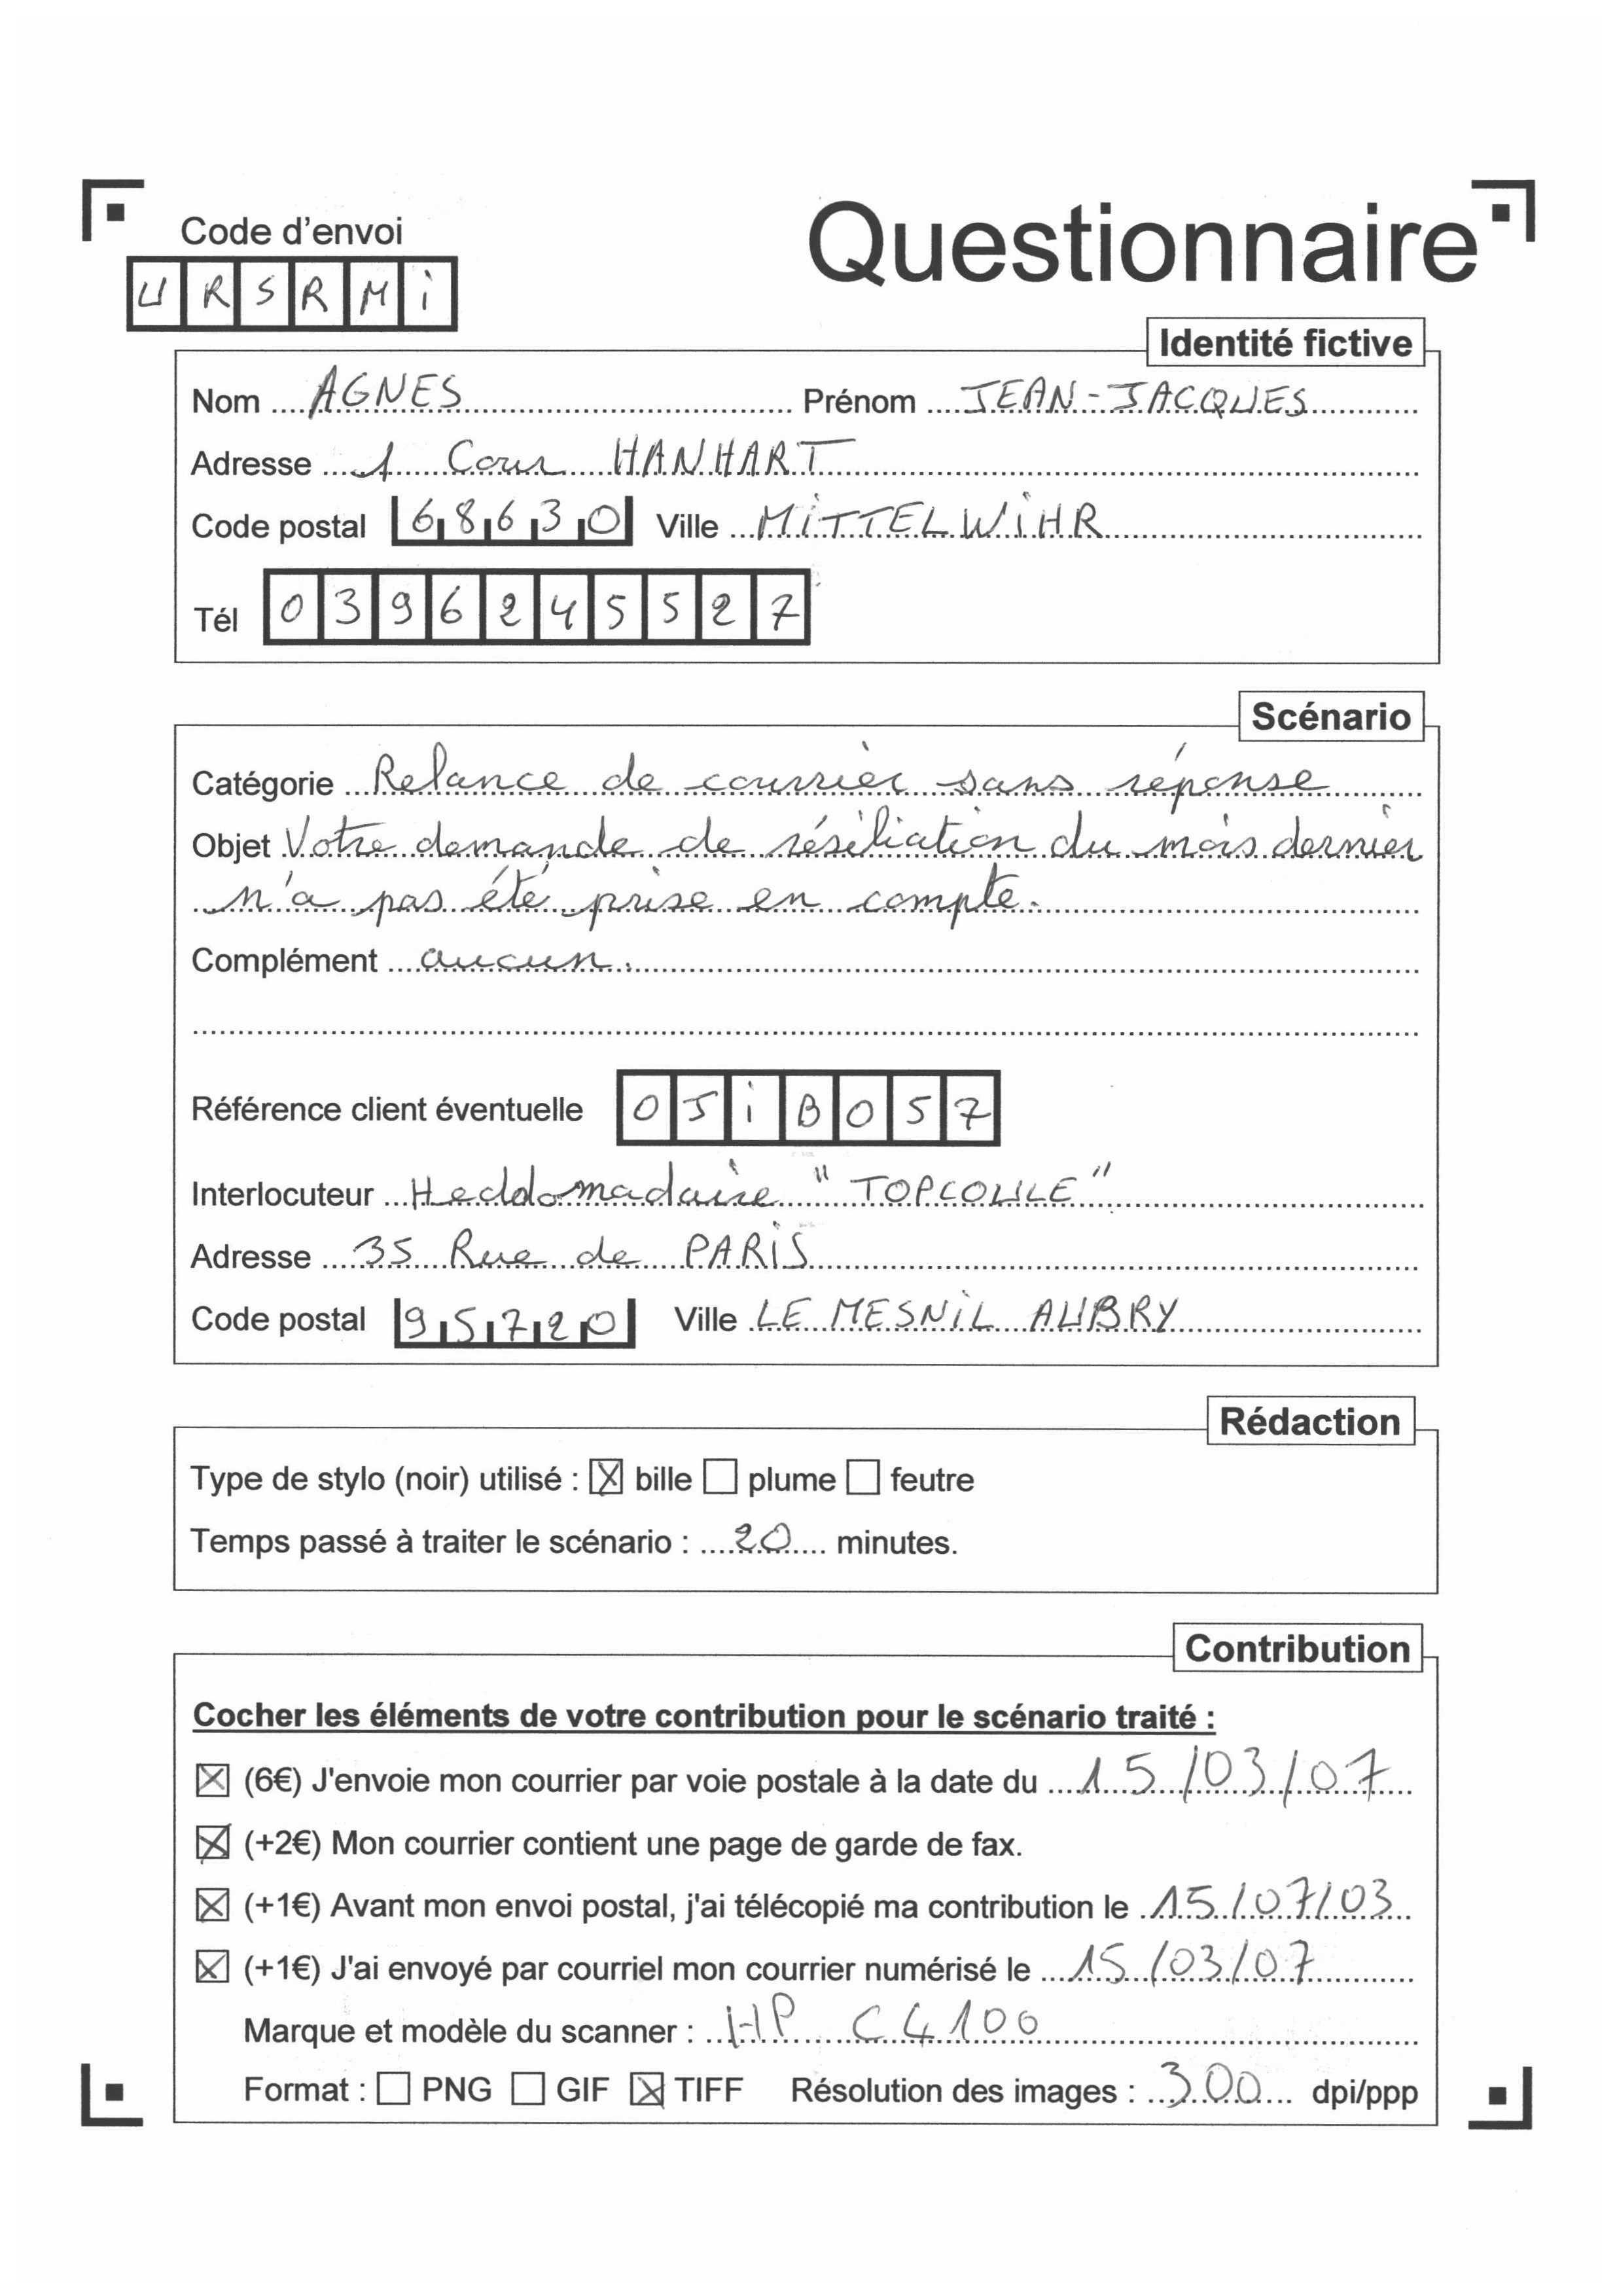 Code d'envoi
Questionnaire
URSRMi
Identité fictive
Nom AGNES Prénom JEAN-JACQUES
Adresse 1 Cour HANHART
Code postal 68630 Ville MiTTELWiHR
Tél 0396245527
Scénario
Catégorie Relance de courrier sans réponse
Objet Votre demande de résiliation du mois dernier
n'a pas été prise en compte.
Complément aucun.
Référence client éventuelle OJiBO57
Interlocuteur Heddomadaire "TOPCOULE"
Adresse 35 Rue de PARiS
Code postal 95720 Ville LE MESNiL AUBRY
Rédaction
Type de stylo (noir) utilisé : ☒ bille ☐ plume ☐ feutre
Temps passé à traiter le scénario : 20 minutes.
Contribution
Cocher les éléments de votre contribution pour le scénario traité :
☒ (6€) J'envoie mon courrier par voie postale à la date du 15/03/07
☒ (+2€) Mon courrier contient une page de garde de fax.
☒ (+1€) Avant mon envoi postal, j'ai télécopié ma contribution le 15/07/03
☒ (+1€) J'ai envoyé par courriel mon courrier numérisé le 15/03/07
Marque et modèle du scanner : HP C4100
Format : ☐ PNG ☐ GIF ☒ TIFF Résolution des images : 300 dpi/ppp